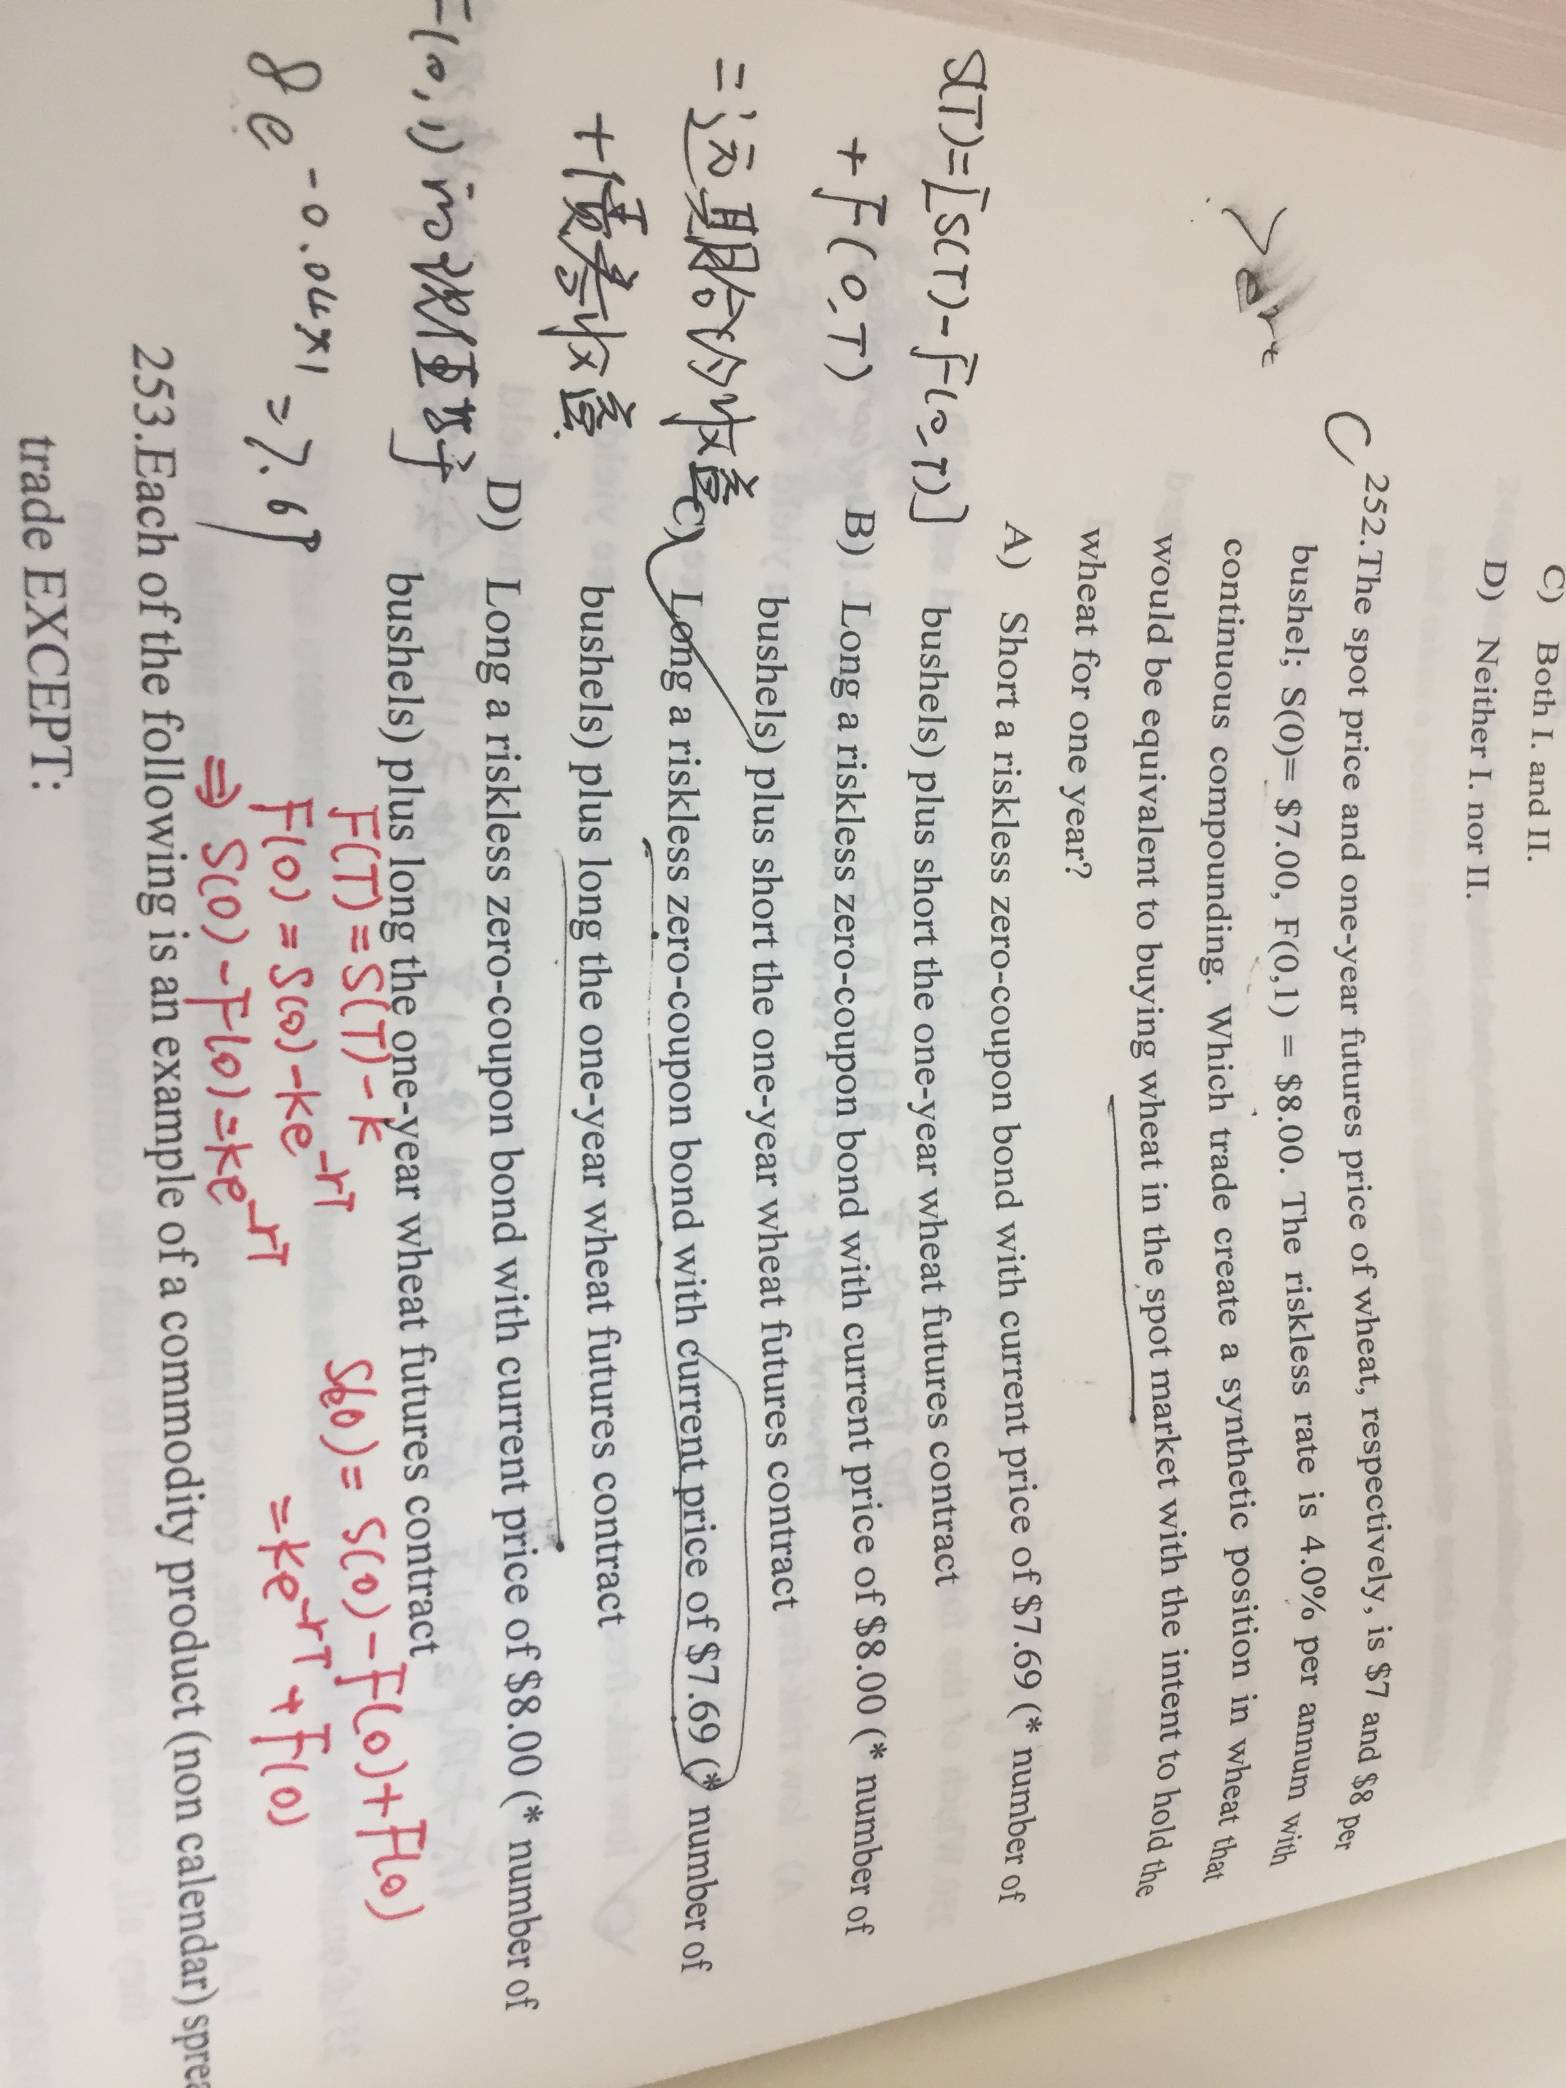 C) Both I. and II.
D) Neither I. nor II.
C 252.The spot price and one-year futures price of wheat, respectively, is $7 and $8 per
bushel; S(0)= $7.00, F(0,1) = $8.00. The riskless rate is 4.0% per annum with
continuous compounding. Which trade create a synthetic position in wheat that
would be equivalent to buying wheat in the spot market with the intent to hold the
wheat for one year?
A) Short a riskless zero-coupon bond with current price of $7.69 (* number of
bushels) plus short the one-year wheat futures contract
B) Long a riskless zero-coupon bond with current price of $8.00 (* number of
bushels) plus short the one-year wheat futures contract
C) Long a riskless zero-coupon bond with current price of $7.69 (* number of
bushels) plus long the one-year wheat futures contract
D) Long a riskless zero-coupon bond with current price of $8.00 (* number of
bushels) plus long the one-year wheat futures contract
S(T)=[S(T)-F(0,T)]
+F(0,T)
=远期合约收益
+债券收益
F(0,1)的现值为
8e^-0.04×1=7.69
F(T)=S(T)-K
F(0)=S(0)-Ke^-rT
⇒S(0)-F(0)=Ke^-rT
S(0)=S(0)-F(0)+F(0)
=Ke^-rT+F(0)
253.Each of the following is an example of a commodity product (non calendar)
trade EXCEPT: